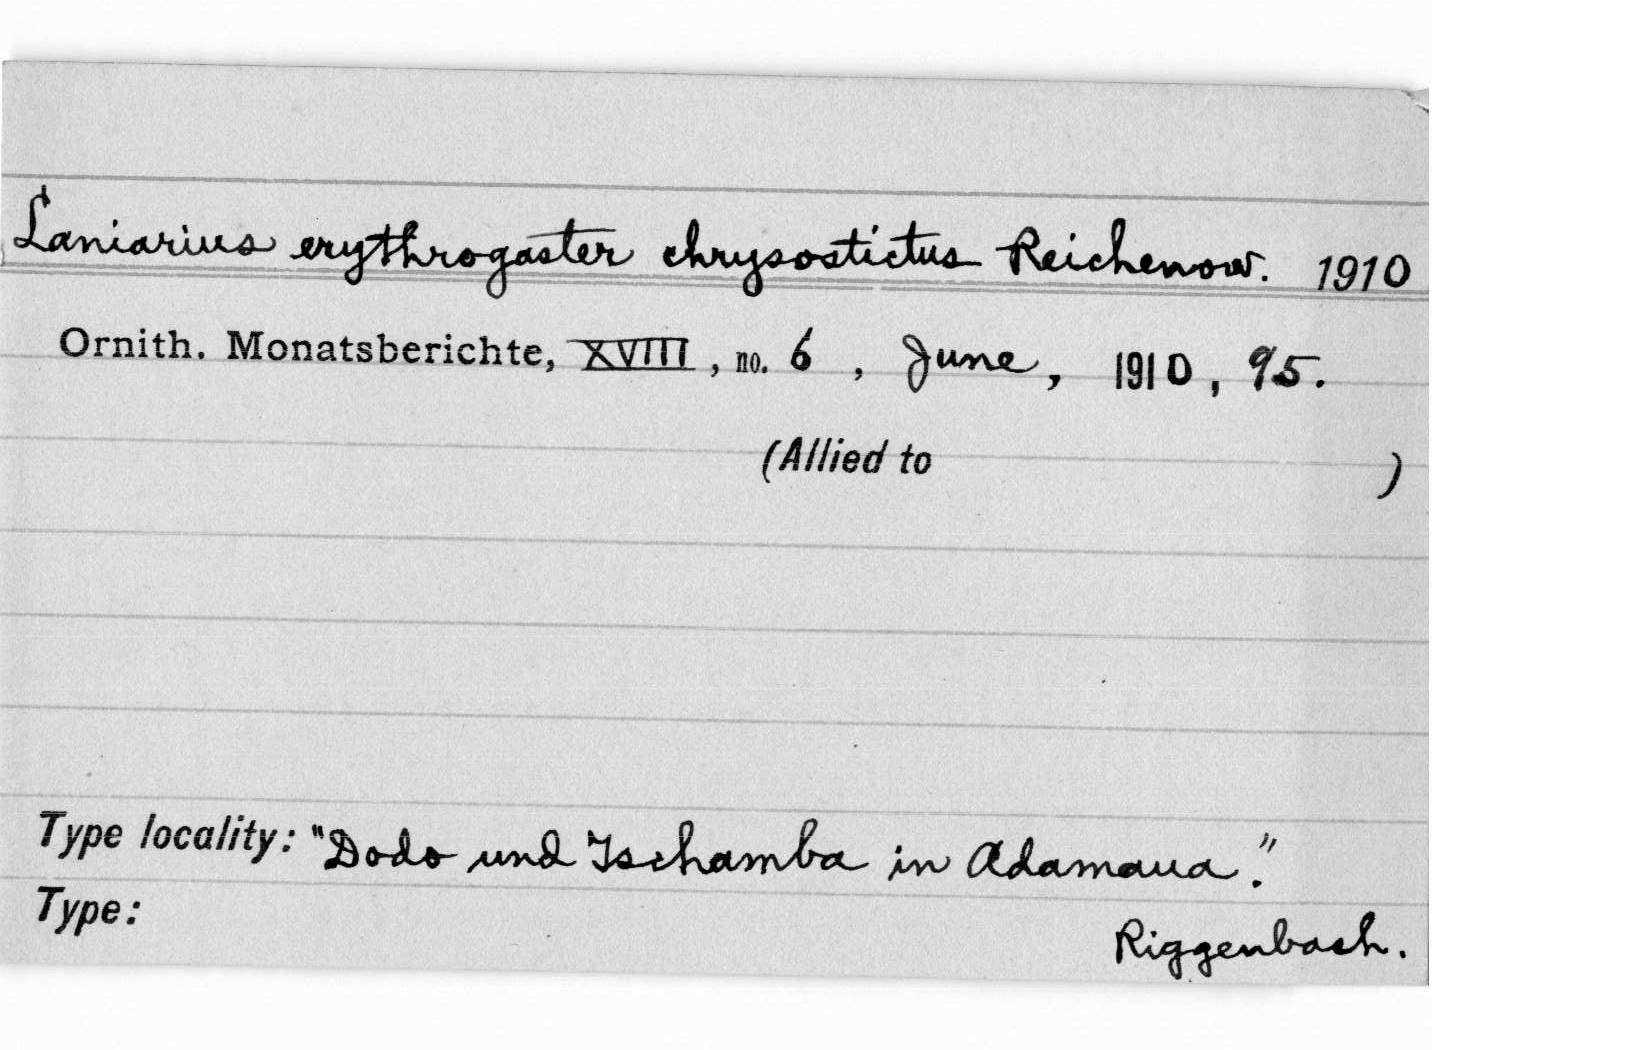 Laniarius erythrogaster chrysostictus Reichenow. 1910
Ornith. Monatsberichte, XVIII, no. 6, June, 1910, 95.
(Allied to )
Type locality: "Dodo und Tschamba in Adamaua."
Type:
Riggenbach.